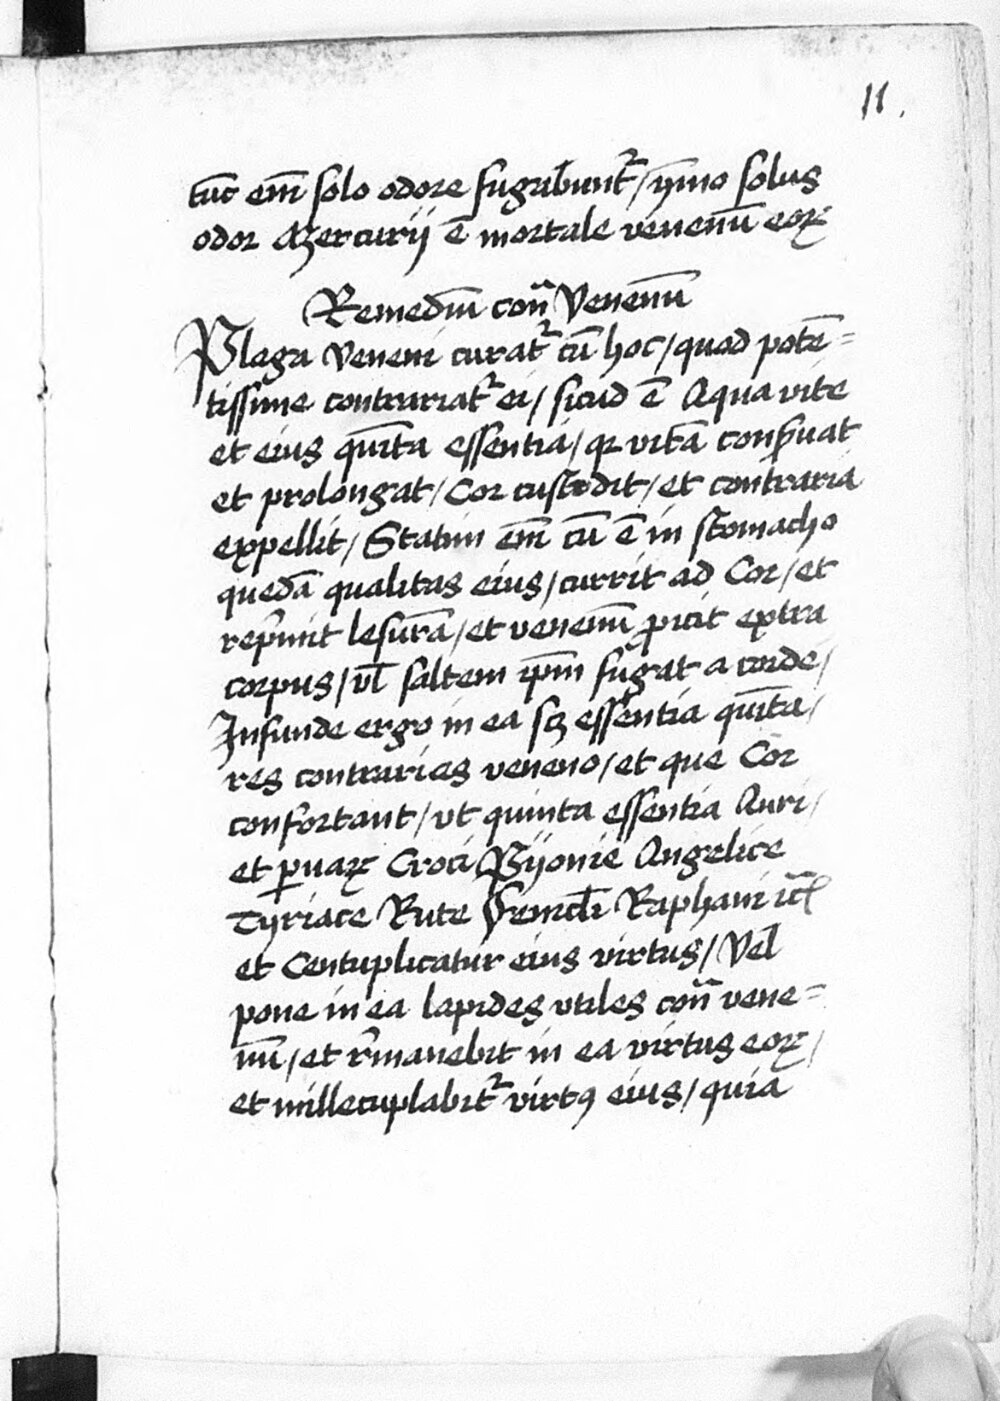 11.
tūc em̄ solo odore fugabunt᷑ / ymo solus
odor Mercurij ē mortale venenū eoꝝ
Remediū contͣ Venenū
Plaga Veneni curat᷑ cū hoc / quod potē=
tissime contrariat᷑ ei / sicud ē Aqua vite
et eius quīta essentia / qꝛ vitā conßuat
et prolongat / Cor custodit / et contraria
expellit / Statim em̄ cū ē in stomacho
quedā qualitas eius / currit ad Cor / et
rep̄mit lesurā / et venenū ꝓicit extra
corpus / vl̄ saltem ip̄m fugat a corde /
Infunde ergo in ea sꝫ essentia quīta /
res contrarias veneno / et que Cor
confortant / vt quinta essentia Auri /
et ꝑuaꝝ Croci Pijonie Angelice
Tyriace Rute Feniculi Raphani ic̄
et Centuplicatur eius virtus / Vel
pone in ea lapides vtiles contͣ vene=
nū / et r̄manebit in ea virtus eoꝝ /
et millecuplabit᷑ virtꝰ eius / quia